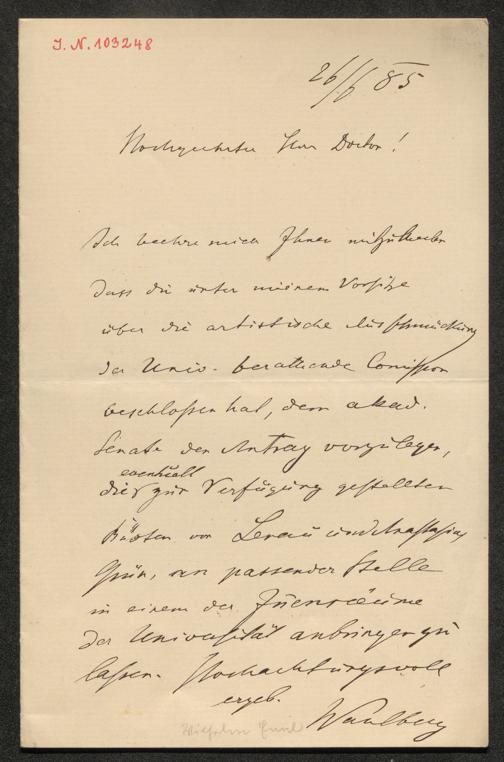 J. N. 103248
26/6 85
Hochgeehrter Herr Doctor!
Ich beehre mich Ihnen mitzutheilen
dass die unter meinem Vorsitze
über die artistische Ausschmückung
der Univ. berathende Comission
beschloßen hat, dem akad.
Senate den Antrag vorzulegen,
eventuell
die zur Verfügung gestellten
Büsten von Lenau und Anastasius
Grün, an passender Stelle
in einem der Innenräume
der Universität anbringen zu
laßen. Hochachtungsvoll
ergeb.
Wahlberg
Wilhelm Emil